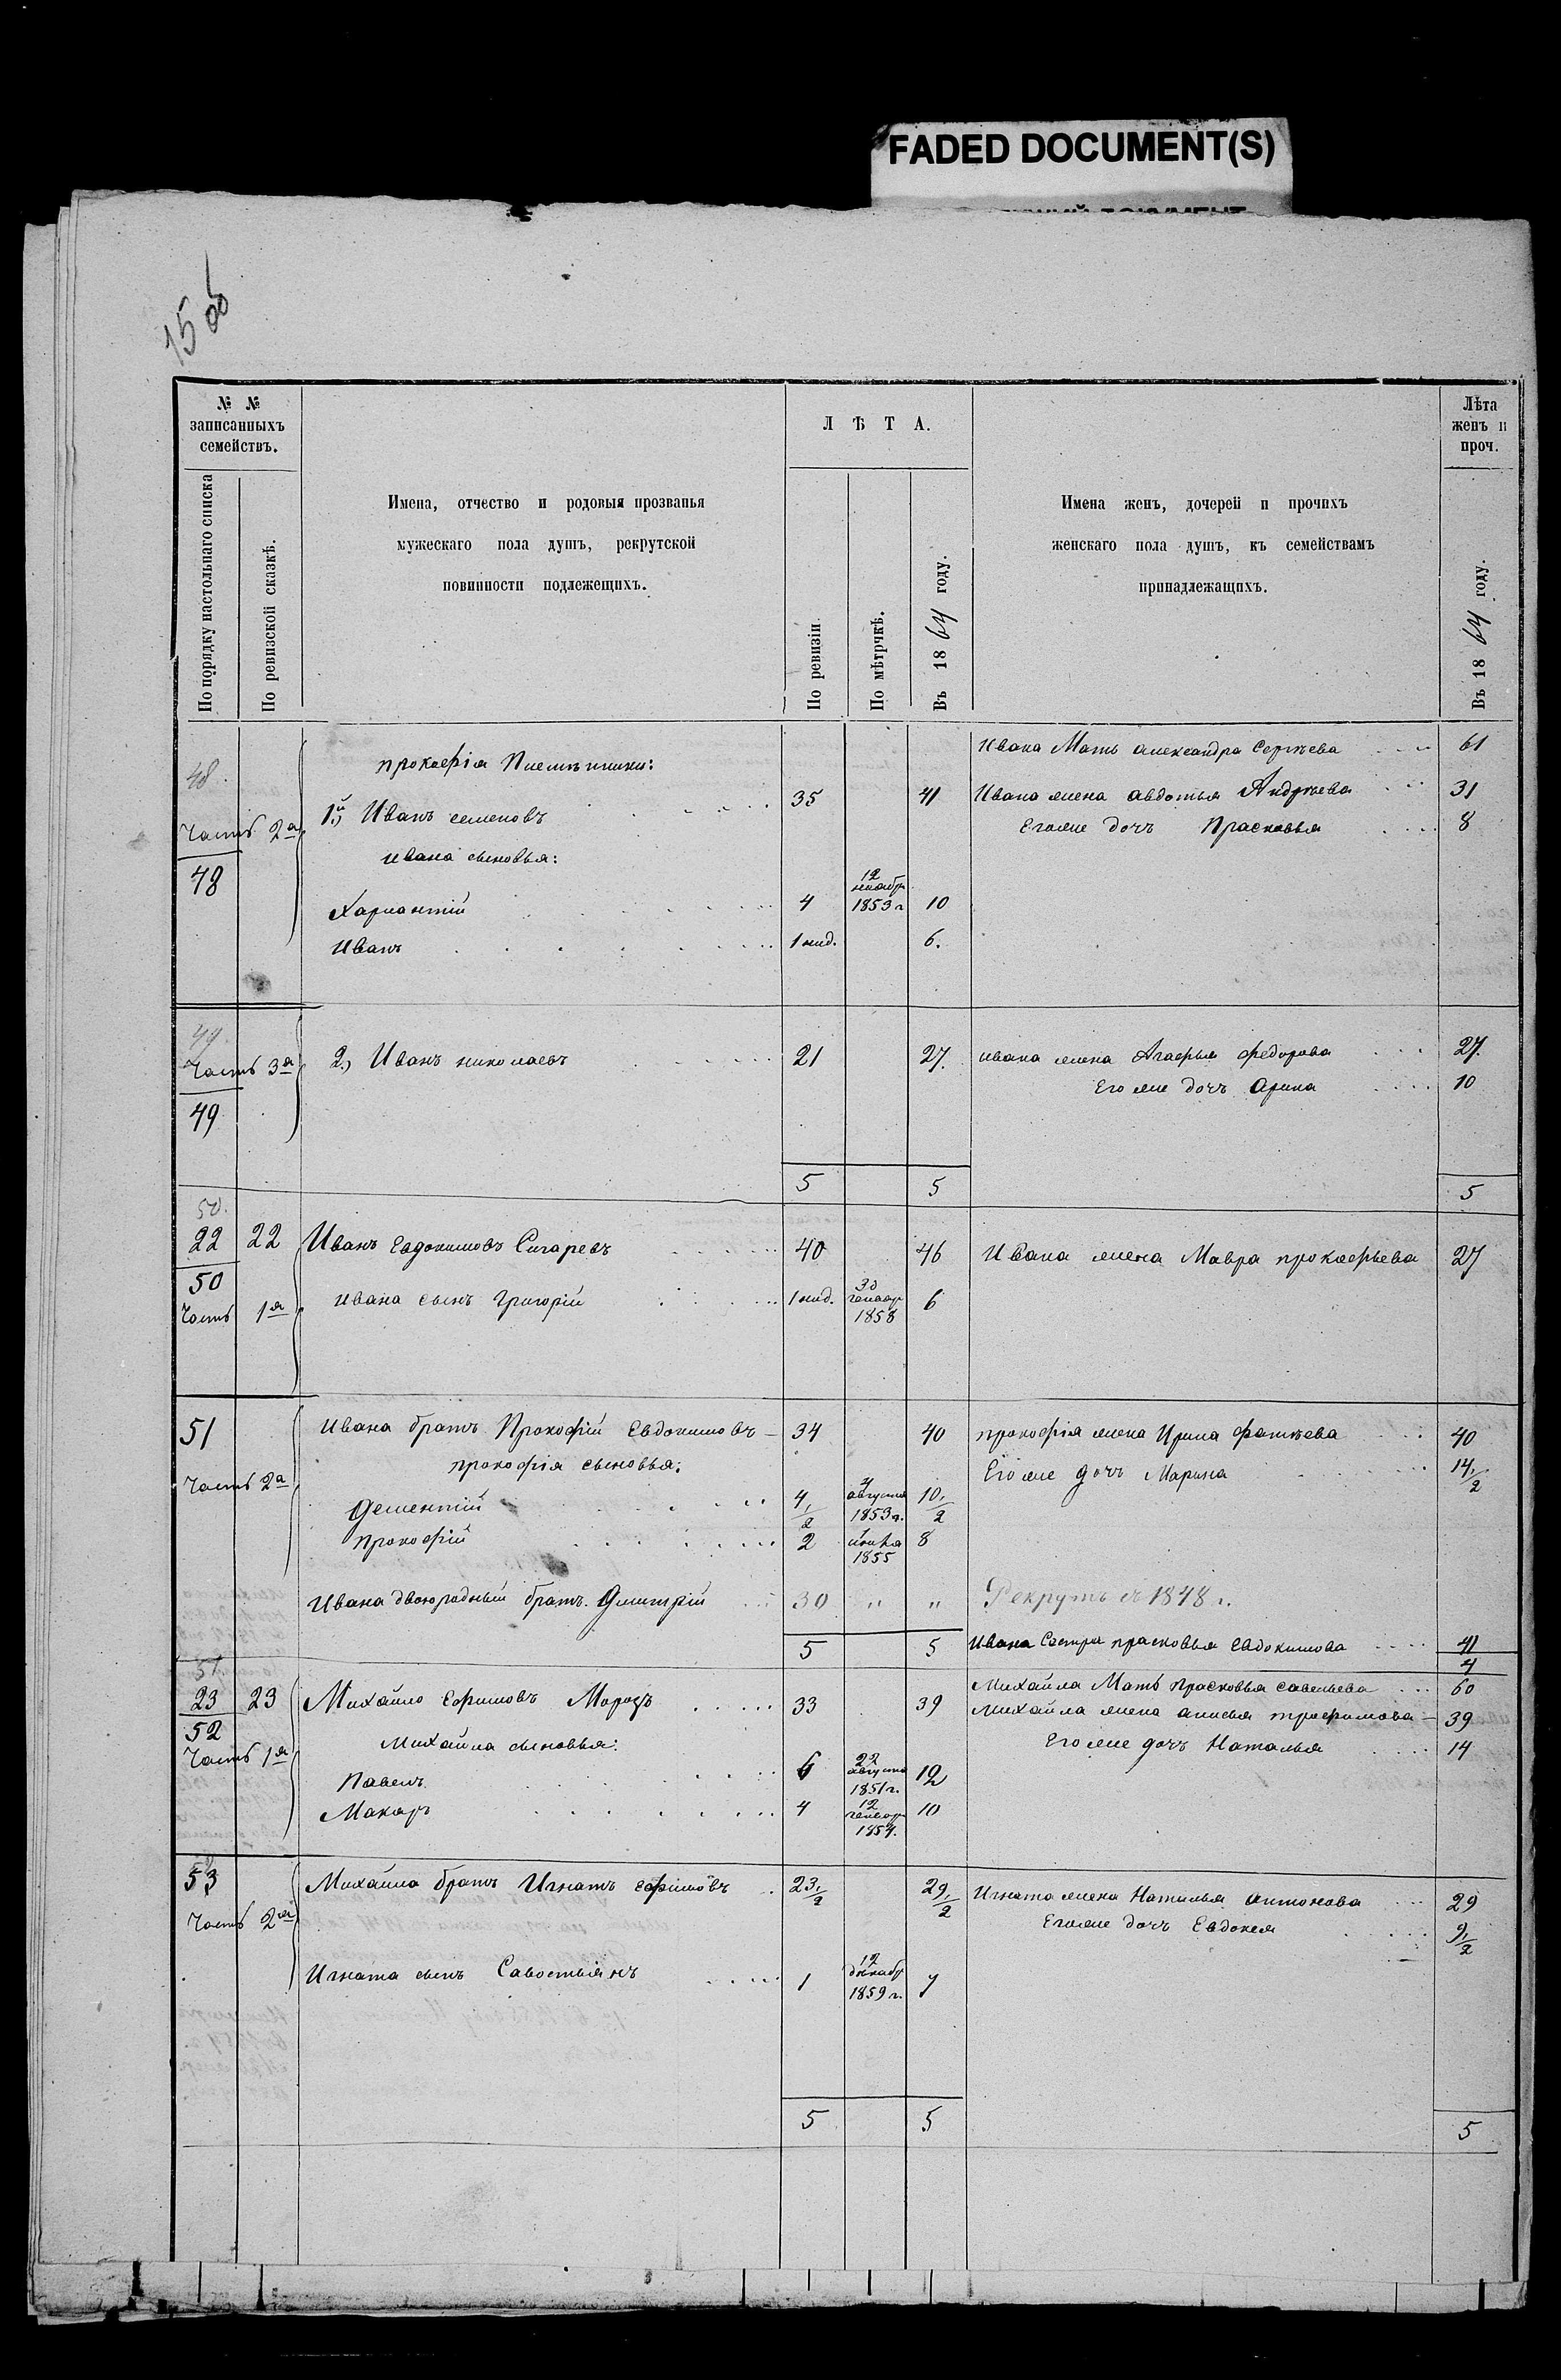 FADED DOCUMENT(S)
15 об
№ №
записанныхъ
семействъ.
По порядку настольнаго списка
По ревизской сказкѣ.
Имена, отчество и родовыя прозванья
мужескаго пола душъ, рекрутской
повинности подлежещихъ.
ЛѢТА.
По ревизіи
По мѣтрчкѣ.
Въ 1864 году.
Имена женъ, дочерей и прочихъ
женскаго пола душъ, къ семействамъ
принадлежащихъ.
Лѣта
женъ и
проч.
Въ 1864 году.
48.
Часть 2я
48
прокофія Племѣнники:
Ивана Мать александра Сергѣева 61
1й Иванъ семеновъ 35 41
Ивана жена авдотья Андрѣева 31
Егоже дочь Прасковья 8
ивана сыновья:
Харлантій 4 12 1853г 10
Иванъ 1 нид. 6.
49.
Часть 3я
49
2) Иванъ николаевъ 21 27.
ивана жена Агафья федорова 27.
Его же дочь Арина 10
5 5 5
50.
22 22
50
Часть 1я
Иванъ Евдокимовъ Сигаревъ 40 46
Ивана жена Мавра прокофьева 27
ивана сынъ Григорій 1 нид. 30 генвар 1858 6
51
Часть 2я
Ивана братъ Прокофій Евдокимовъ 34 40
прокофія жена Ирина фатѣева 40
прокофія сыновья:
Его же дочь Марина 14 1/2
Дементій 4 1/2 4 августа 1853г. 10 1/2
прокофій 2 1855 8
Ивана двоюродный братъ Дмитрій 30 " "
Рекрутъ съ 1848 г.
5 5
Ивана Сестра прасковья Евдокимова 41
4
51
23 23
52
Часть 1я
Михайло Ефимовъ Морозъ 33 39
Михайла Мать прасковья савельева 60
Михайла жена анисья трофимова 39
Его же дочь Наталья 14
Михайла сыновья:
Павелъ 6 22 августа 1851г. 12
Макаръ 4 12 генвар 1854. 10
53
Часть 2я
Михайла братъ Игнатъ ефимовъ 23 1/2 29 1/2
Игната жена Наталья антонова 29
Егоже дочь Евдокея 9 1/2
Игната сынъ Савостьянъ 1 12 декабр 1859г. 7
5 5 5